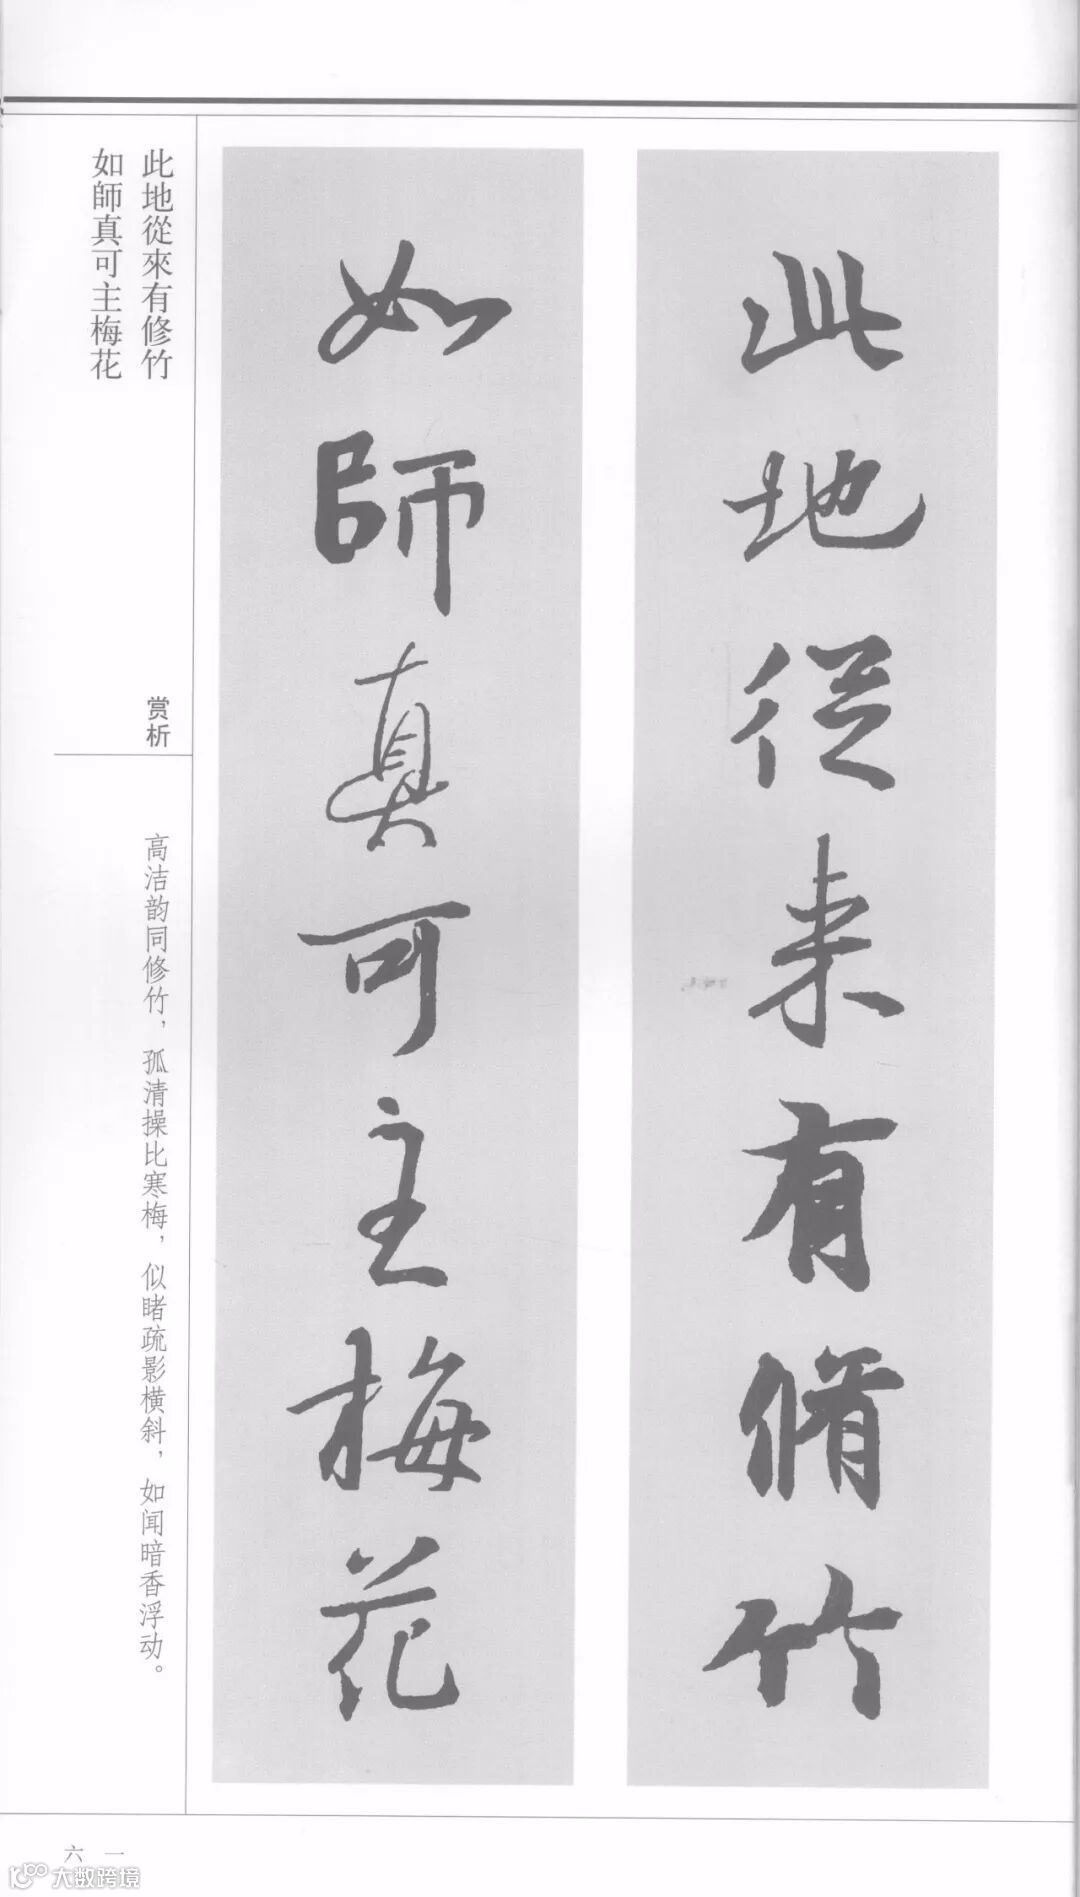 此地從来有脩竹
如師真可主梅花
此地從來有修竹
如師真可主梅花
赏析
高洁韵同修竹，孤清操比寒梅，似睹疏影横斜，如闻暗香浮动。
六一
大数跨境